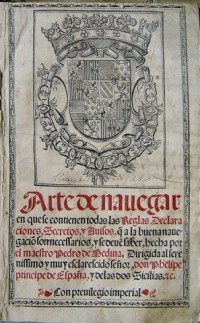 Arte de nauegar
en que se contienen todas las Reglas, Declara
ciones, Secretos, y Auisos, q̃ a la buena naue
gaciõ son necessarios, y se deuẽ saber, hecha por
el maestro Pedro de Medina. Dirigida al sere
nissimo y muy esclarescido señor, don Phelipe
principe de España, y delas dos Sicilias. ⁊c.
Con preuilegio imperial.